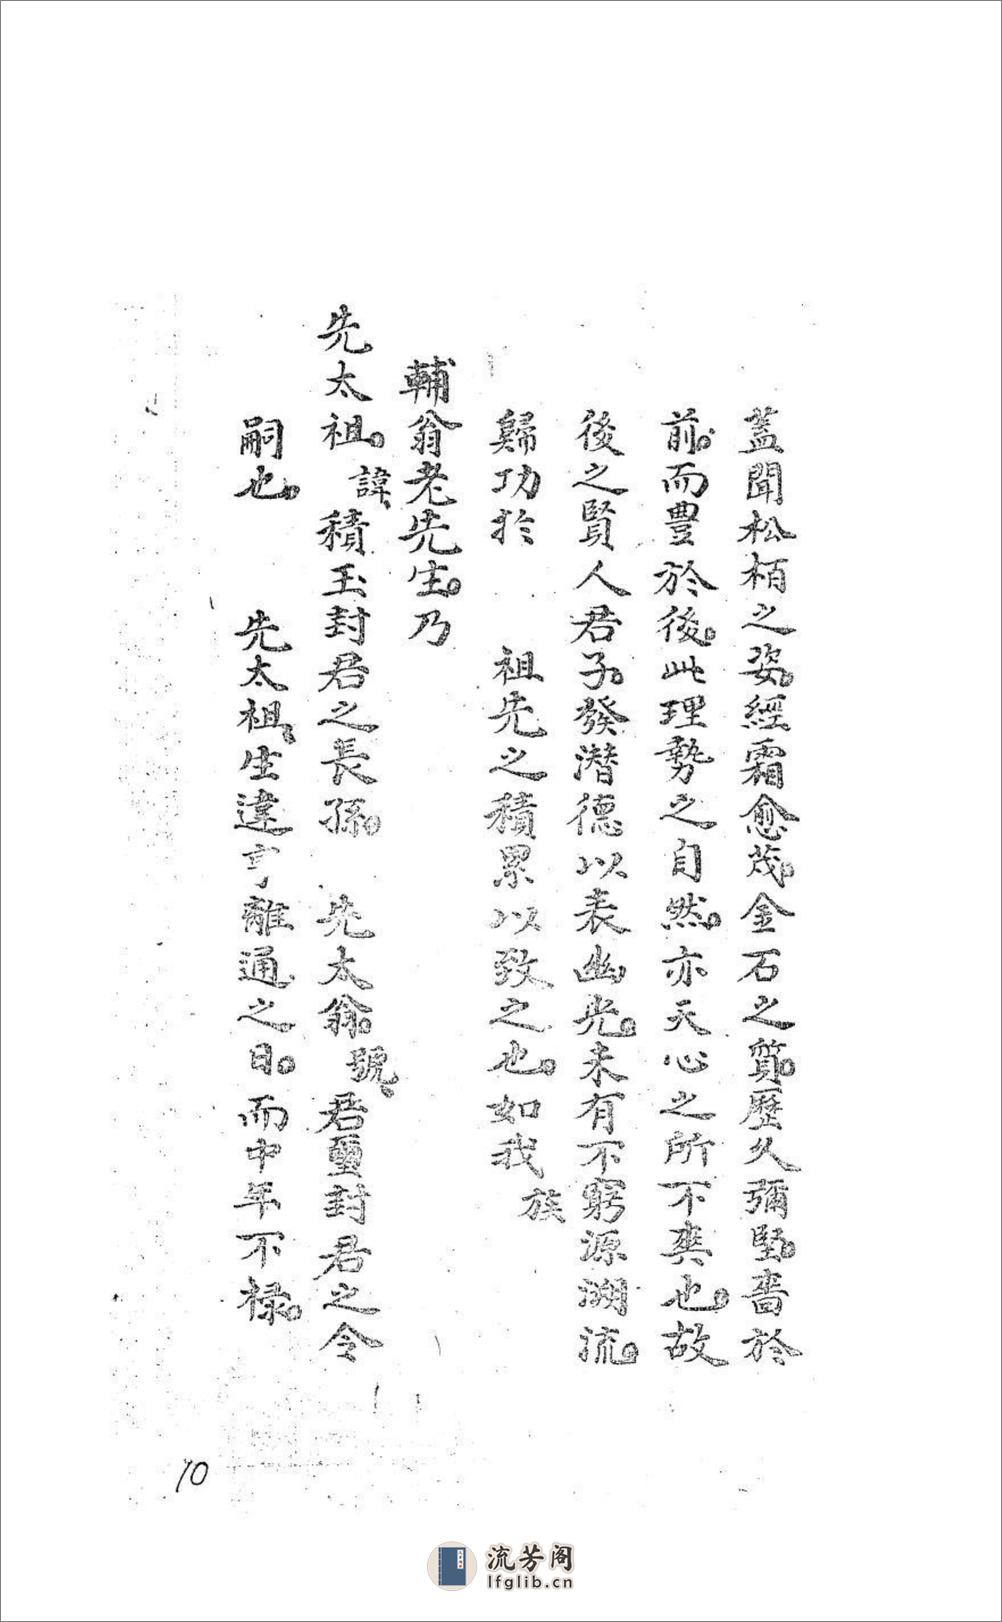 蓋聞松栢之姿。經霜愈茂。金石之質。歷久彌堅。嗇於
前。而豊於後。此理勢之自然。亦天心之所不爽也。故
後之賢人君子。發潜德以表幽光。未有不窮源溯流。
歸功於 祖先之積累以致之也。如我族
輔翁老先生。乃
先太祖。諱、積玉封君之長孫。 先太翁。號、君璽封君之令
嗣也。 先太祖、生違亨離通之日。而中年不祿。
10
流芳阁
lfglib.cn